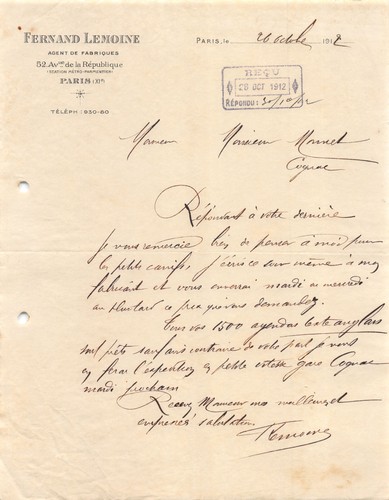 FERNAND LEMOINE
AGENT DE FABRIQUES
52, Avnue de la République
(STATION MÉTRO-PARMENTIER)
PARIS (XIe)
TÉLÉPH: 930-60
PARIS, le 26 octobre 1912
REÇU
28 OCT 1912
RÉPONDU: 30/10/12
Monsieur Monsieur Monnet
Cognac
Répondant à votre dernière
je vous remercie bien de penser à moi pour
les petits canifs, j'écris ce soir même à mon
fabricant et vous enverrai mardi ou mercredi
au plus tard ce prix que vous demandez.
Tous vos 1500 agendas texte anglais
sont prêts sauf avis contraire de votre part je vous
en ferai l'expédition en petite vitesse gare Cognac
mardi prochain
Recevez Monsieur mes meilleures et
empressées salutations
Lemoine